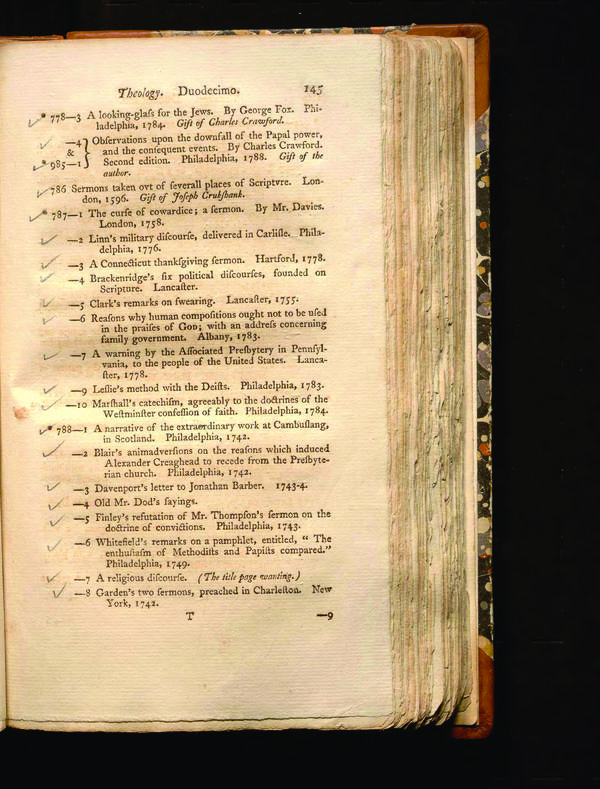 Theology. Duodecimo. 145
* 778—3 A looking-glaſs for the Jews. By George Fox. Phi-
ladelphia, 1784. Gift of Charles Crawford.
—4 } Obſervations upon the downfall of the Papal power,
& and the conſequent events. By Charles Crawford.
* 985—1 Second edition. Philadelphia, 1788. Gift of the
author.
786 Sermons taken ovt of ſeverall places of Scriptvre. Lon-
don, 1596. Gift of Joſeph Crukſhank.
* 787—1 The curſe of cowardice; a ſermon. By Mr. Davies.
London, 1758.
—2 Linn's military diſcourſe, delivered in Carliſle. Phila-
delphia, 1776.
—3 A Connecticut thankſgiving ſermon. Hartford, 1778.
—4 Brackenridge's ſix political diſcourſes, founded on
Scripture. Lancaſter.
—5 Clark's remarks on ſwearing. Lancaſter, 1755.
—6 Reaſons why human compoſitions ought not to be uſed
in the praiſes of God; with an addreſs concerning
family government. Albany, 1783.
—7 A warning by the Aſſociated Preſbytery in Pennſyl-
vania, to the people of the United States. Lanca-
ſter, 1778.
—9 Leſlie's method with the Deiſts. Philadelphia, 1783.
—10 Marſhall's catechiſm, agreeably to the doctrines of the
Weſtminſter confeſſion of faith. Philadelphia, 1784.
* 788—1 A narrative of the extraordinary work at Cambuſlang,
in Scotland. Philadelphia, 1742.
—2 Blair's animadverſions on the reaſons which induced
Alexander Creaghead to recede from the Preſbyte-
rian church. Philadelphia, 1742.
—3 Davenport's letter to Jonathan Barber. 1743-4.
—4 Old Mr. Dod's ſayings.
—5 Finley's refutation of Mr. Thompſon's ſermon on the
doctrine of convictions. Philadelphia, 1743.
—6 Whitefield's remarks on a pamphlet, entitled, “ The
enthuſiaſm of Methodiſts and Papiſts compared.”
Philadelphia, 1749.
—7 A religious diſcourſe. (The title page wanting.)
—8 Garden's two ſermons, preached in Charleſton. New
York, 1742.
T —9